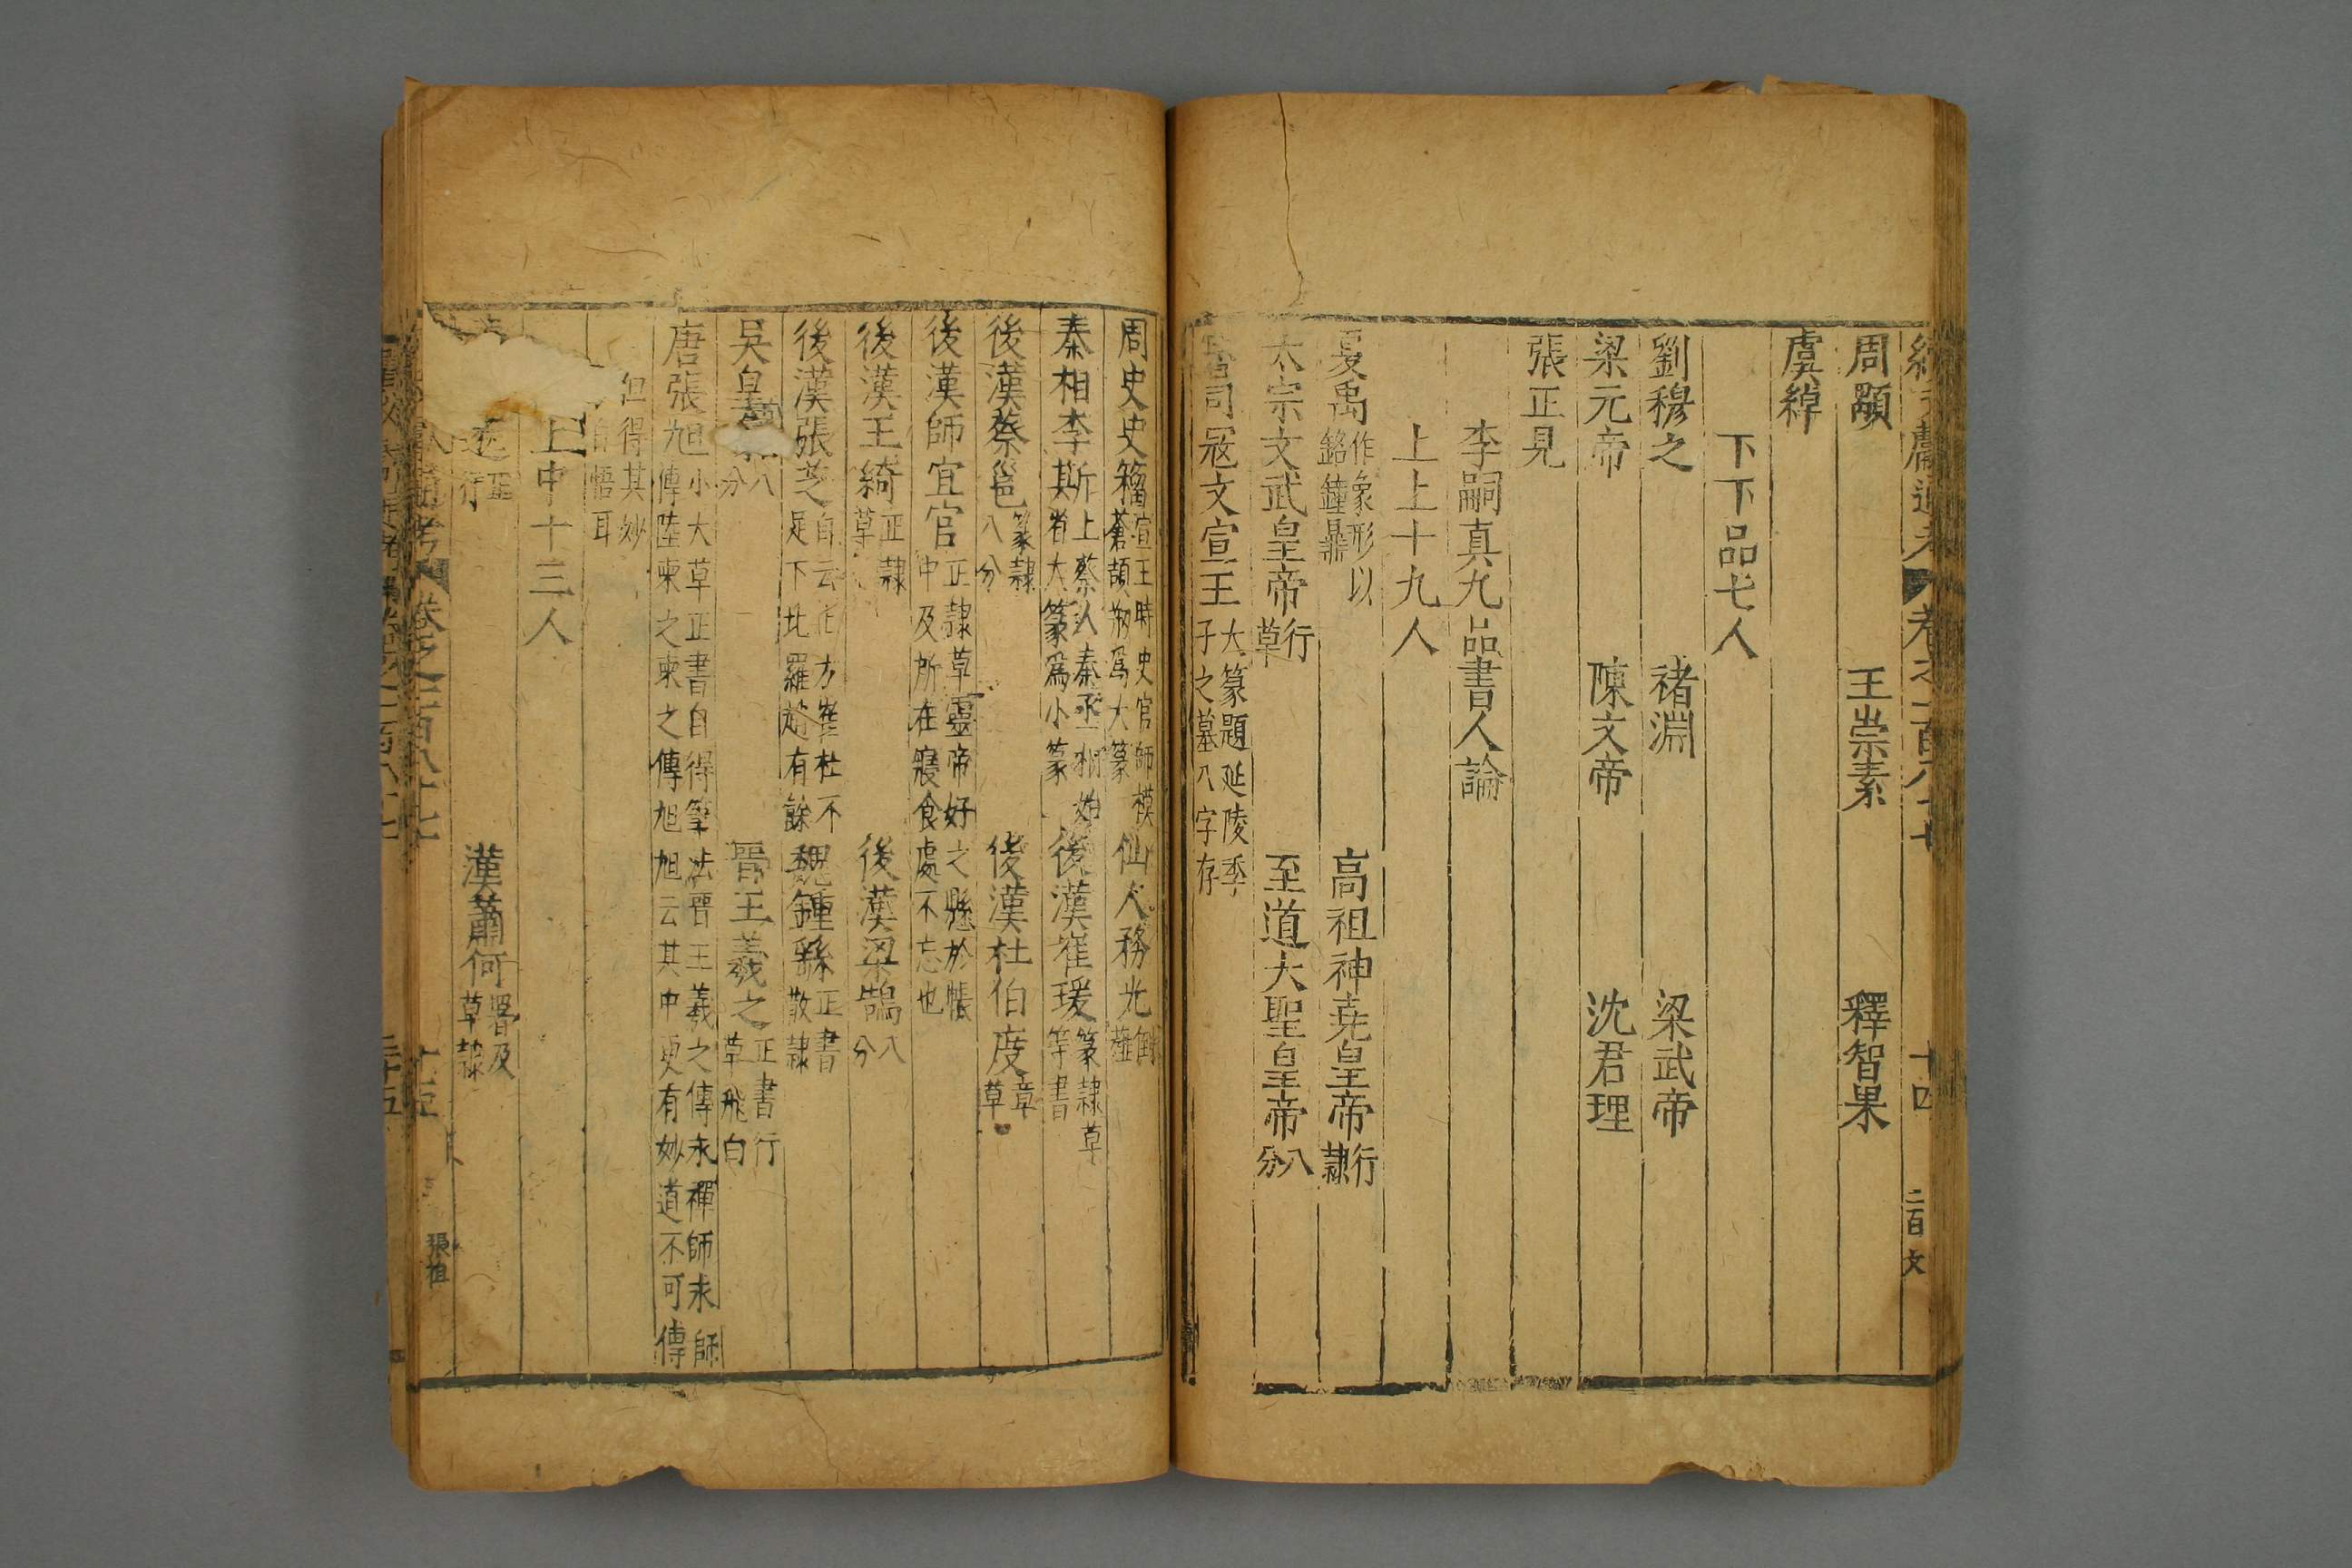 周顒 王崇素 釋智果
虞綽
下下品七人
劉穆之 褚淵 梁武帝
梁元帝 陳文帝 沈君理
張正見
李嗣真九品書人論
上上十九人
夏禹 作象形以銘鐘鼎 高祖神堯皇帝 行隸
太宗文武皇帝 行草 至道大聖皇帝 八分
司寇文宣王 大篆題延陵季子之墓八字存
周史史籀 宣王時史官師模蒼頡㧞爲大篆 仙人務光 倒薤
秦相李斯 上蔡人秦丞相始省大篆爲小篆 後漢崔瑗 篆隸草等書
後漢蔡邕 篆隸八分 後漢杜伯度 章草
後漢師宜官 正隸草靈帝好之懸於帳中及所在寢食處不忘也
後漢王綺 正隸草 後漢梁鵠 八分
後漢張芝 自云正方崔杜不足下比羅趙有餘 魏鍾繇 正書散隸
吳皇 八分 晉王羲之 正書行草飛白
唐張旭 小大草正書自得筆法晉王羲之傳永禪師永師傳陸柬之柬之傳旭旭云其中更有妙道不可傳
但得其妙自悟耳
上中十三人
正行 漢蕭何 署及草隸
卷之一百八十七
張祖
十四
二百文